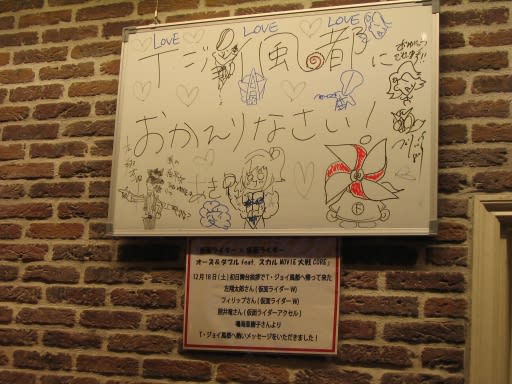 LOVE LOVE LOVE
T・ジョイ風都に
おかえりなさい!
仮面ライダー×仮面ライダー
オーズ&ダブル feat. スカル MOVIE大戦CORE』
12月18日(土)初日舞台挨拶でT・ジョイ風都へ帰って来た
左翔太郎さん(仮面ライダーW)
フィリップさん(仮面ライダーW)
照井竜さん(仮面ライダーアクセル)
鳴海亜樹子さんより
T・ジョイ風都へ熱いメッセージをいただきました!